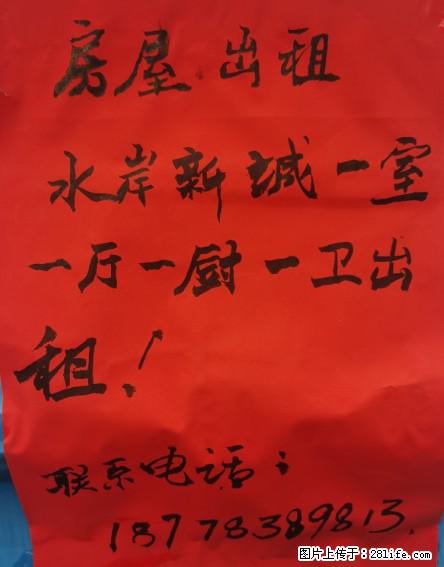 房屋出租
水岸新城一室
一厅一厨一卫出
租！
联系电话：
18778389813.
图片上传于：281life.com